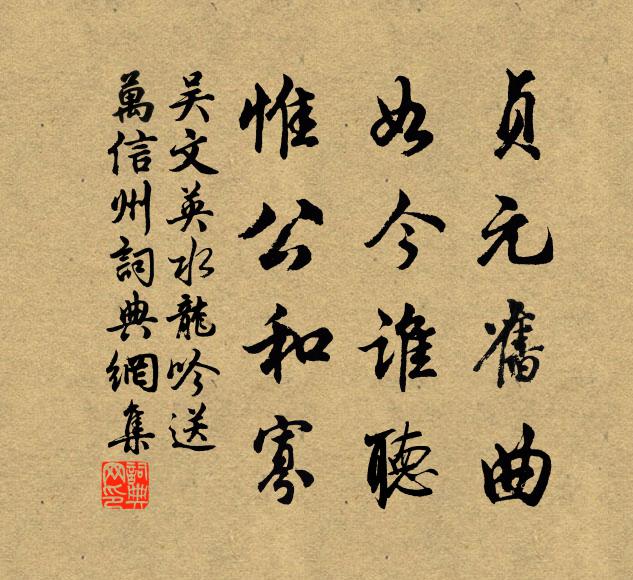 貞元舊曲
如今誰聽
惟公和寡
吳文英水龍吟送
萬信州詞典網集
詞典网印